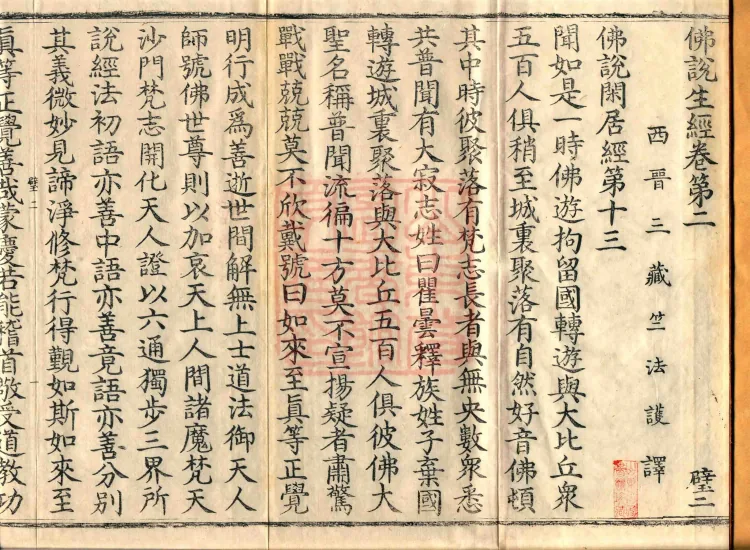 佛說生經卷第二 璧二
西晉三藏竺法護譯
佛說閑居經第十三
聞如是一時佛遊拘留國轉遊與大比丘眾
五百人俱稍至城裏聚落有自然好音佛頓
其中時彼聚落有梵志長者與無央數眾悉
共普聞有大寂志姓曰瞿曇釋族姓子棄國
轉遊城裏聚落與大比丘五百人俱彼佛大
聖名稱普聞流徧十方莫不宣揚疑者肅驚
戰戰兢兢莫不欣戴號曰如來至真等正覺
明行成為善逝世間解無上士道法御天人
師號佛世尊則以加哀天上人間諸魔梵天
沙門梵志開化天人證以六通獨步三界所
說經法初語亦善中語亦善竟語亦善分別
其義微妙見諦淨修梵行得觀如斯如來至
璧二 一
真等正覺善哉蒙慶若能稽首敬受道教功